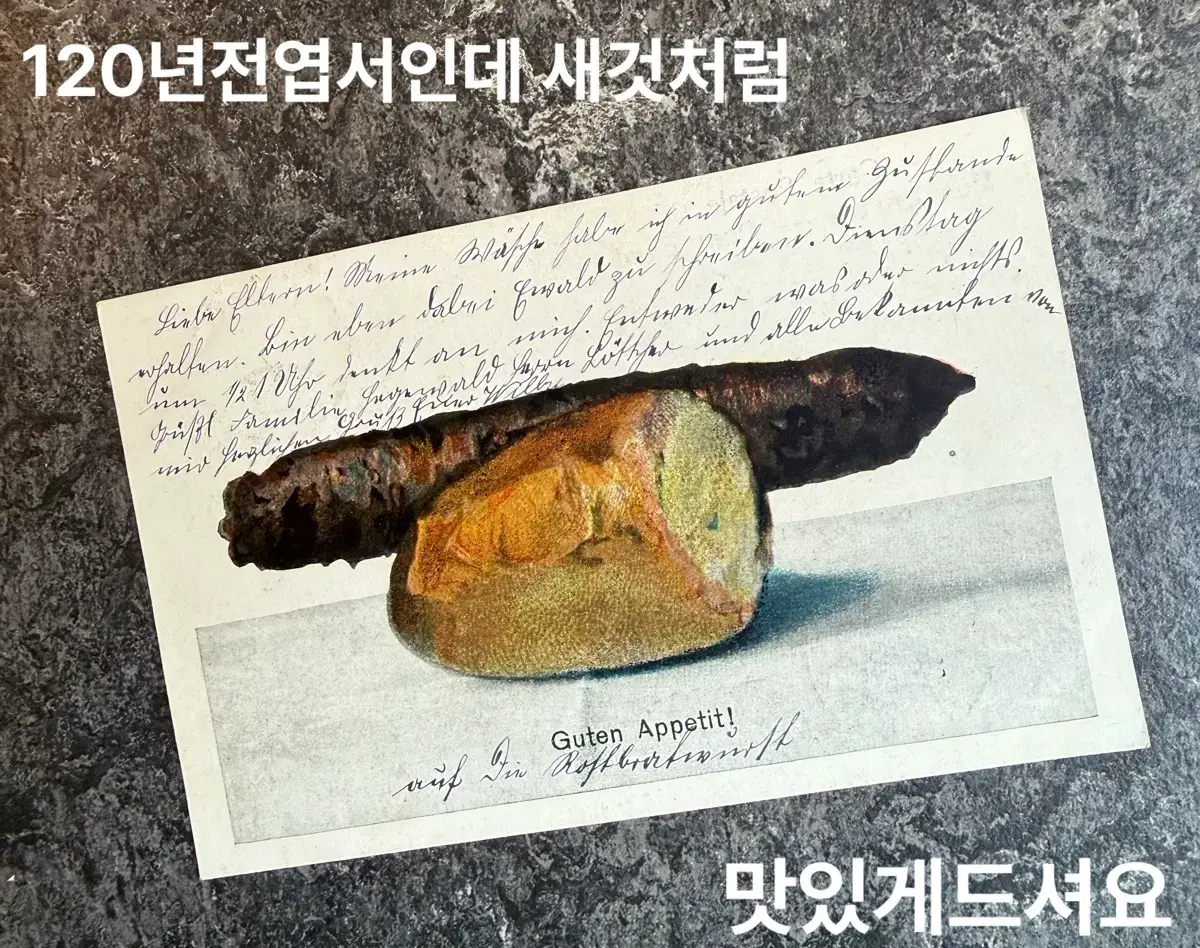 120년전엽서인데 새것처럼
Liebe Eltern! Meine Wäsche habe ich in gutem Zustande
erhalten. Bin eben dabei Ewald zu schreiben. Dienstag
um ½ 1 Uhr denkt an mich. Entweder was oder nichts.
Grüßt Familie Hegewald Herrn Böttcher und alle Bekannten von
mir herzlichen Gruß Euer Willy
Guten Appetit!
auf die Rostbratwurst
맛있게드셔요